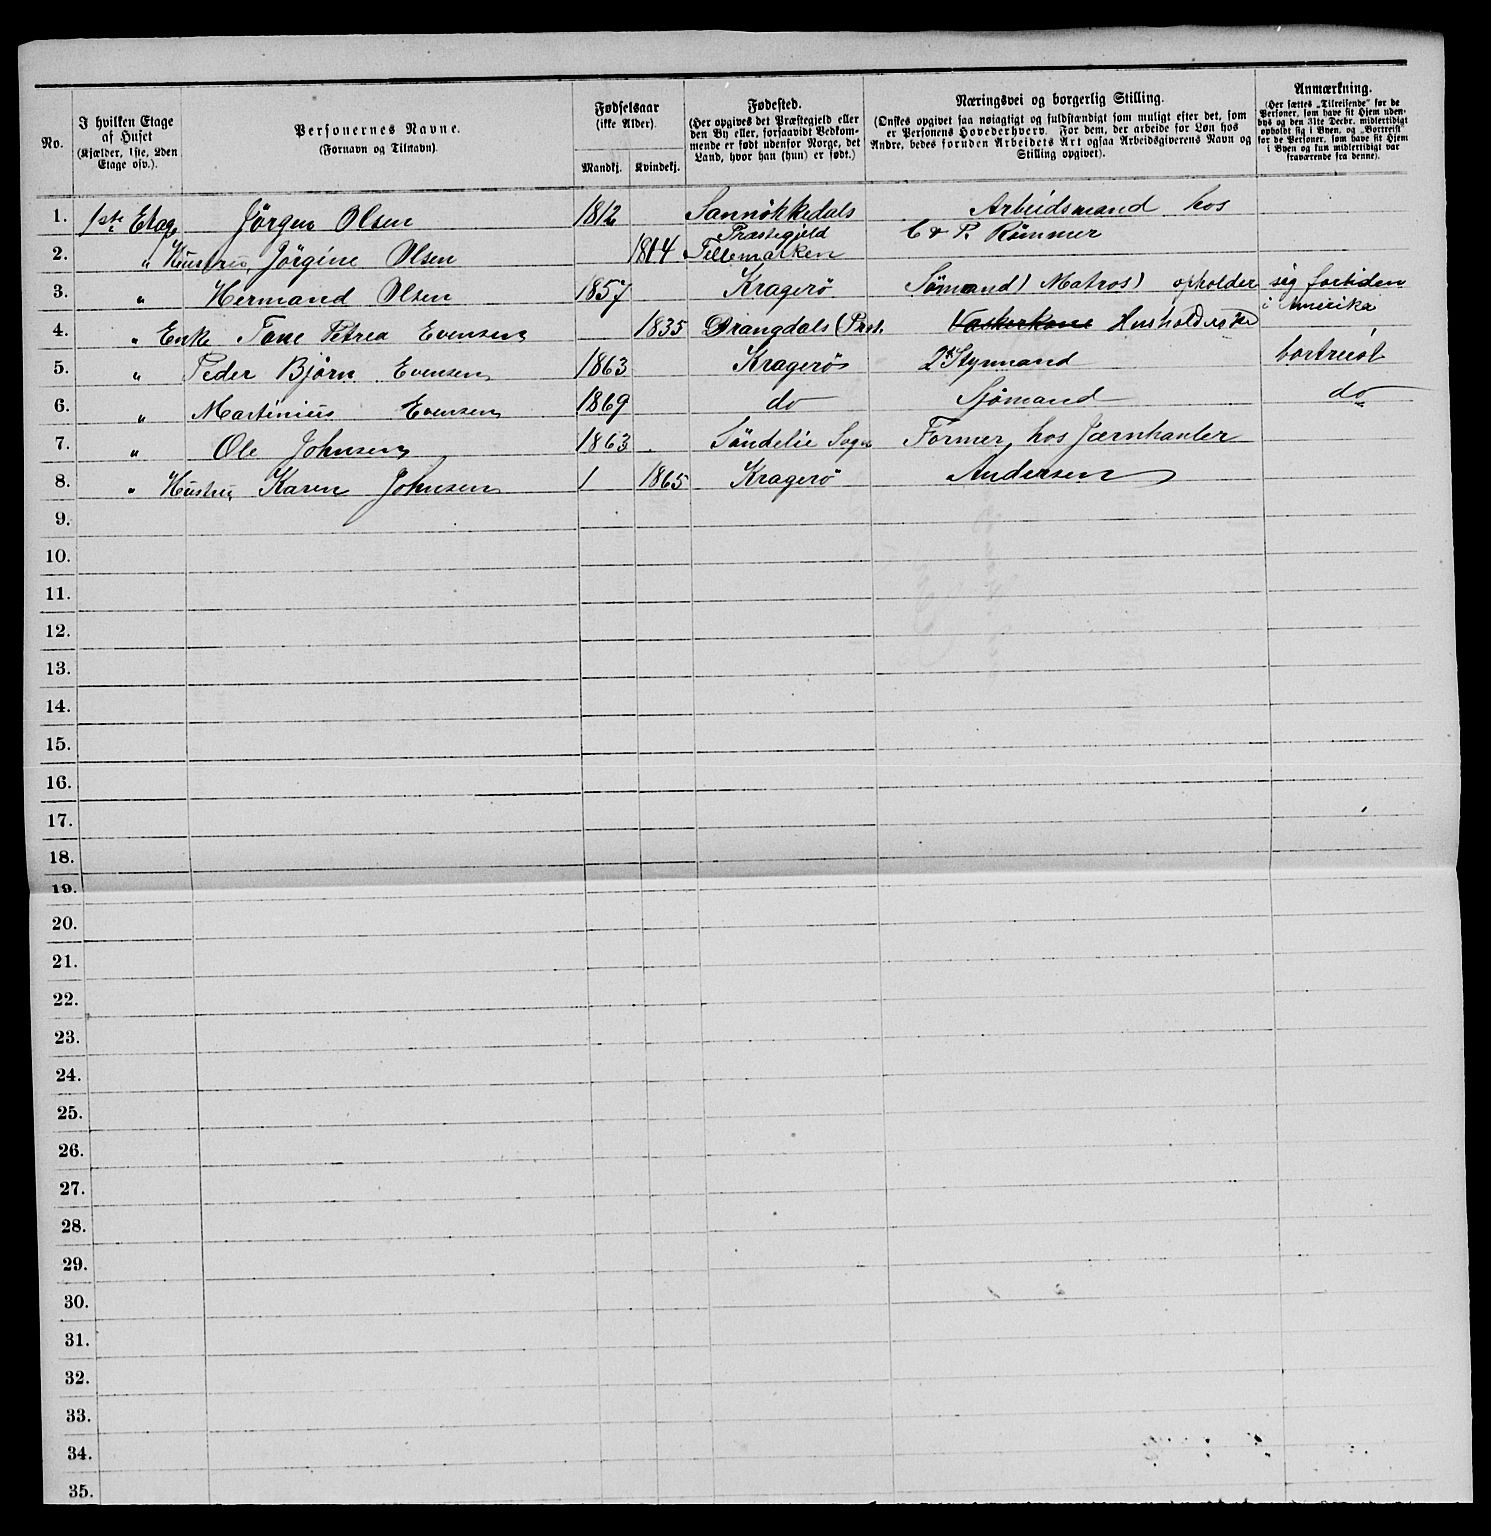 No.
I hvilken Etage af Huset (Kjælder, 1ste, 2den Etage osv.).
Personernes Navne. (Fornavn og Tilnavn).
Fødselsaar (ikke Alder).
Mandkj. Kvindekj.
Fødested. (Her opgives det Præstegjeld eller den By eller, forsaavidt Vedkommende er født udenfor Norge, det Land, hvor han (hun) er født.)
Næringsvei og borgerlig Stilling. (Ønskes opgivet saa nøiagtigt og fuldstændigt som muligt efter det, som er Personens Hovederhverv. For dem, der arbeide for Løn hos Andre, bedes foruden Arbeidets Art ogsaa Arbeidsgiverens Navn og Stilling opgivet).
Anmærkning. (Her sættes „Tilreisende" for de Personer, som have sit Hjem udenbys og den 31te Decbr. midlertidigt opholdt sig i Byen, og „Bortreist" for de Personer, som have sit Hjem i Byen og kun midlertidigt var fraværende fra denne).
1. 1ste Etage Jörgen Olsen 1812 Sannökkedals Arbeidsmand hos
Præstegjeld C & P. Römmer
2. " Hustru, Jörgine Olsen 1814 Tellemarken
3. " Hermand Olsen 1857 Kragerö Sömand (Matros) opholder sig fortiden
i Amerika
4. " Enke Tone Petrea Evensen 1835 Drangdals Prst. Vaskerkone Husholderske
5. " Peder Björn Evensen 1863 Kragerö 2. Styrmand bortreist
6. " Martinius Evensen 1869 do Sjömand do
7. " Ole Johnsen 1863 Söndelie Sogn Former, hos Jærnhanler
8. " Hustru Karen Johnsen 1 1865 Kragerö Andersen
9.
10.
11.
12.
13.
14.
15.
16.
17.
18.
19.
20.
21.
22.
23.
24.
25.
26.
27.
28.
29.
30.
31.
32.
33.
34.
35.